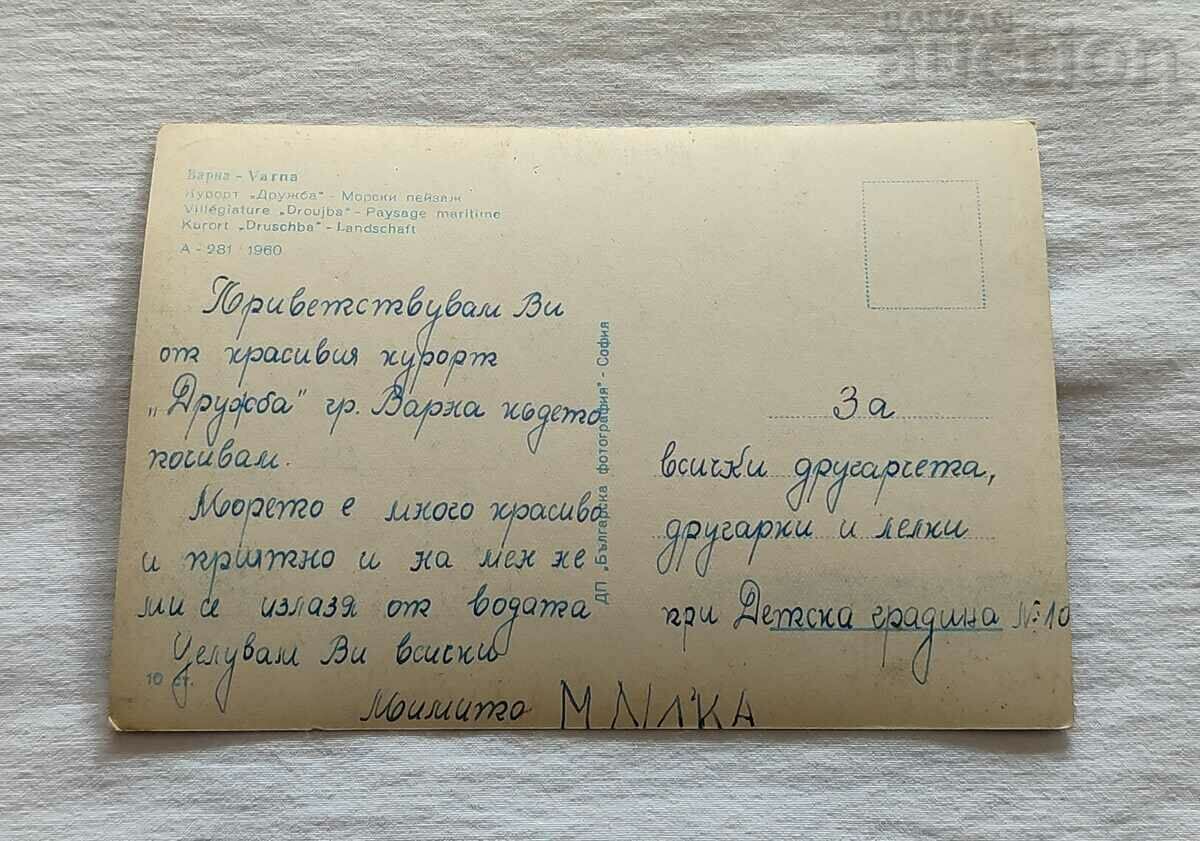 Варна - Varna
Курорт „Дружба" - Морски пейзаж
Villégiature „Droujba" - Paysage maritime
Kurort „Druschba" - Landschaft
А - 281 1960
Приветствувам Ви
от красивия курорт
„Дружба" гр. Варна където
почивам.
Морето е много красиво
и приятно и на мен не
ми се излазя от водата
Целувам Ви всички
Мимито МИЛКА
10 ст.
ДП „Българска фотография" - София
За
всички другарчета,
другарки и лелки
при Детска градина № 10
auction